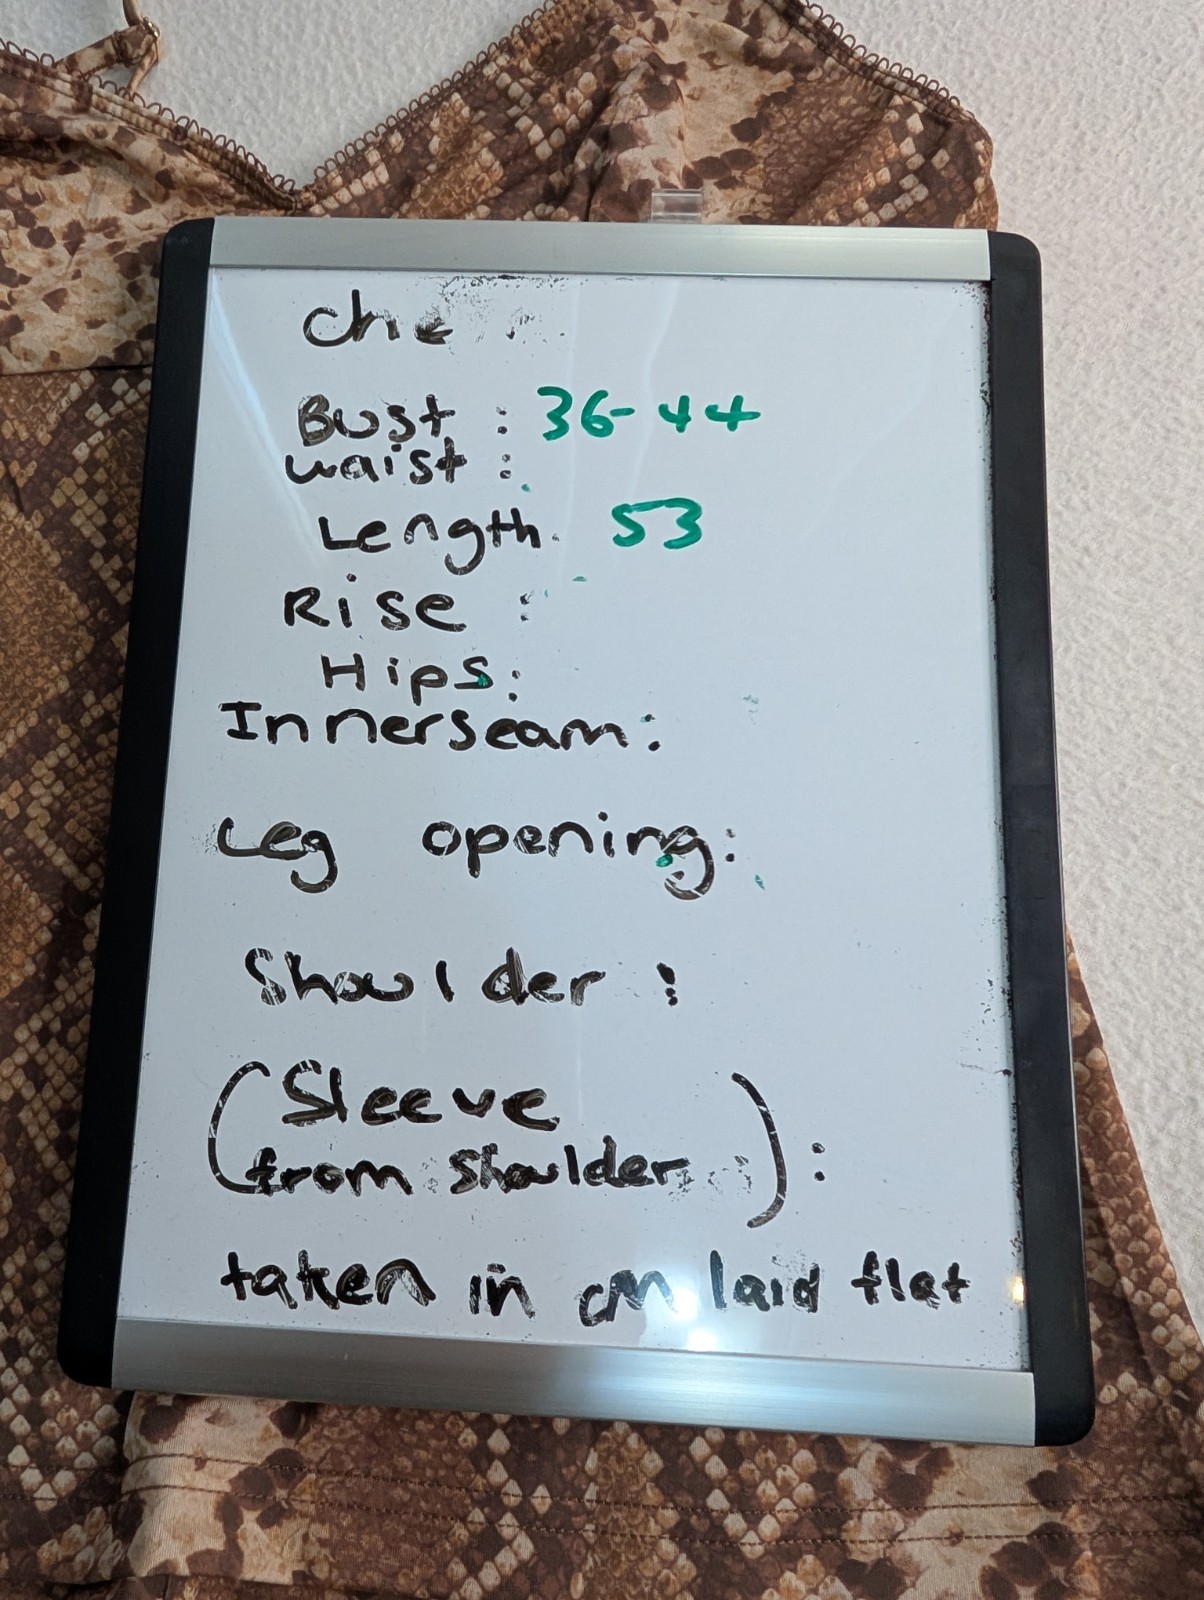 Bust : 36-44
waist :
Length. 53
Rise :
Hips:
Innerseam:
Leg opening:
Shoulder :
(Sleeve
from shoulder ) :
taken in cm laid flat